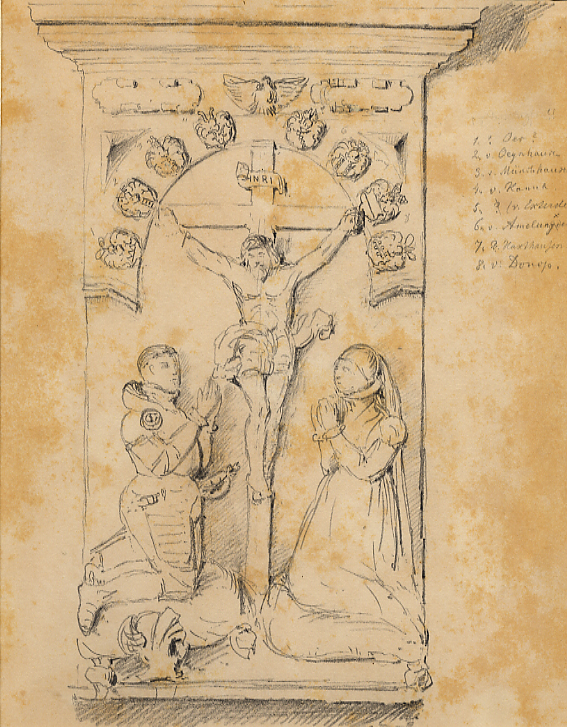 INRI
1. ? Oer ?
2. v. Oeynhausen
3. v. Münchhausen
4. v. Hanch
5. ? (v. Exterde
6. v. Amelunxen
7. v. Haxthausen
8. v. Donop.